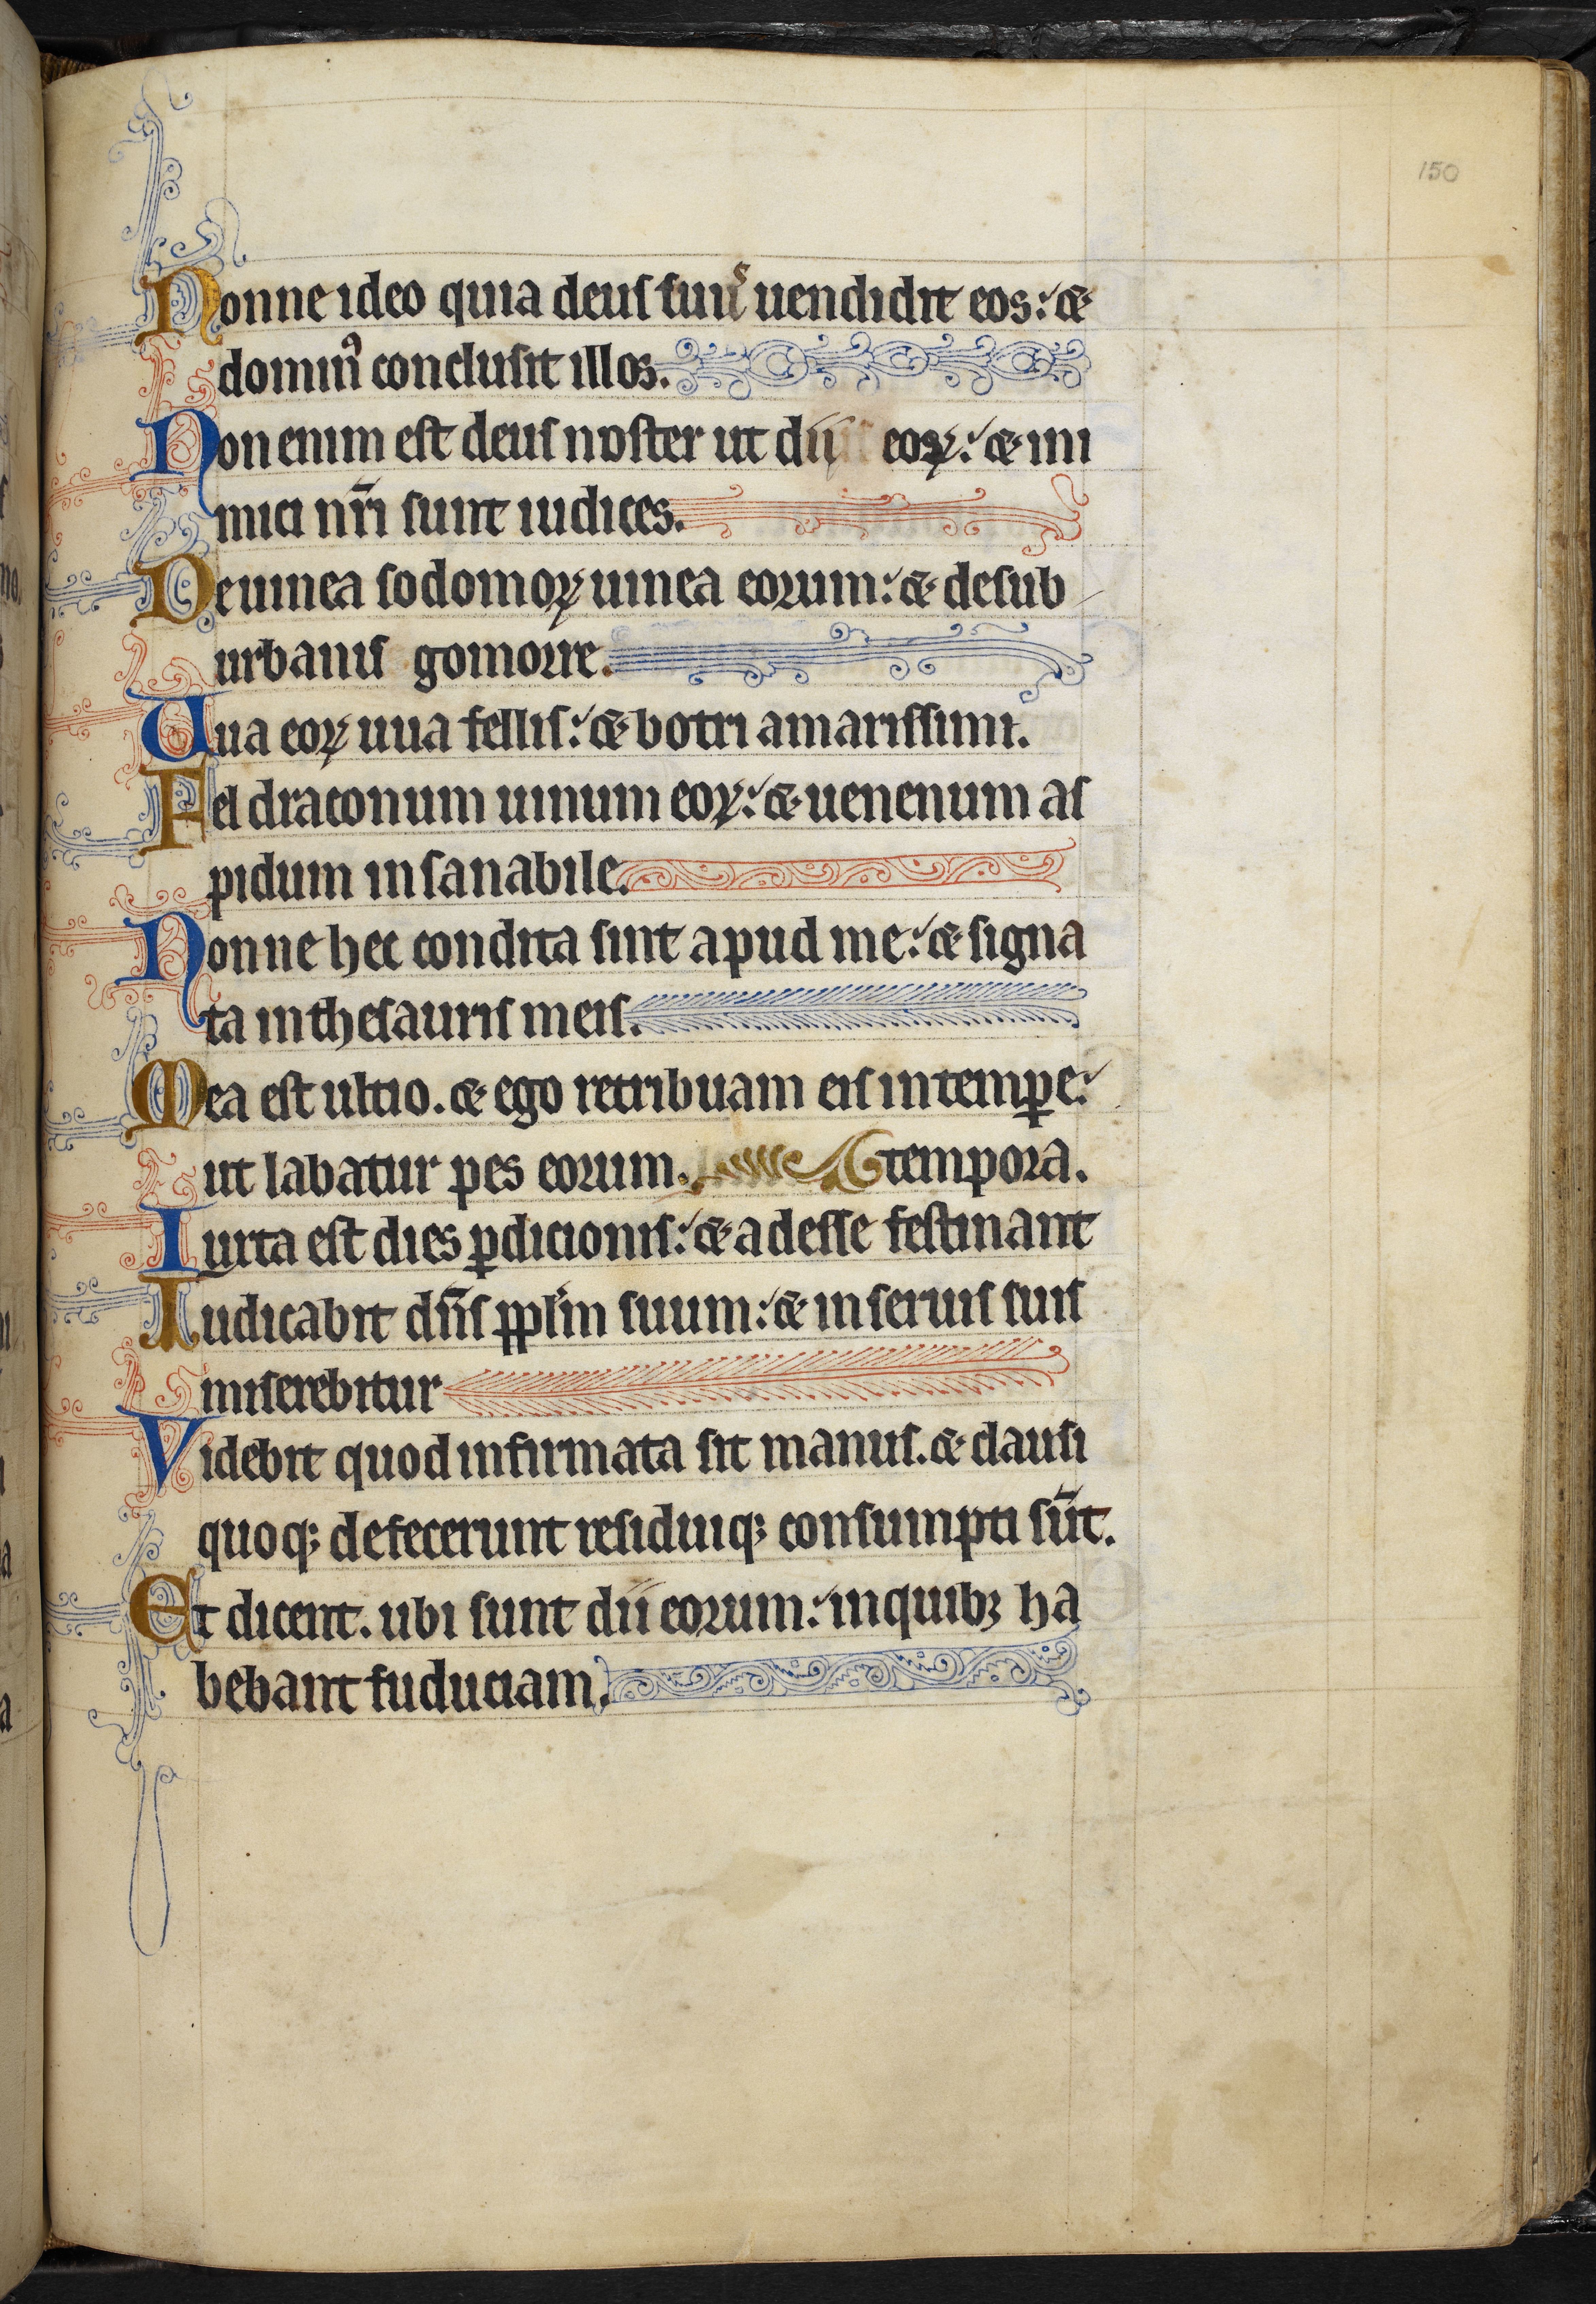 150
Nonne ideo quia deus suuˢ uendidit eos: &
dominꝰ conclusit illos.
Non enim est deus noster ut dii eoꝝ: & ini
mici nr̄i sunt iudices.
De uinea sodomoꝝ uinea eorum: & de sub
urbanis gomorre.
Uua eoꝝ uua fellis: & botri amarissimi.
Fel draconum uinum eoꝝ: & uenenum as
pidum insanabile.
Nonne hec condita sunt apud me: & signa
ta in thesauris meis.
Mea est ultio. & ego retribuam eis in temꝑe:
ut labatur pes eorum.
tempora.
Iuxta est dies ꝑdicionis: & adesse festinant
Iudicabit dn̄s ppl̄m suum: & in seruis suis
miserebitur
Videbit quod infirmata sit manus. & clausi
quoqꝫ defecerunt residuiqꝫ consumpti sūt.
Et dicent. ubi sunt dii eorum: in quibꝫ ha
bebant fiduciam.